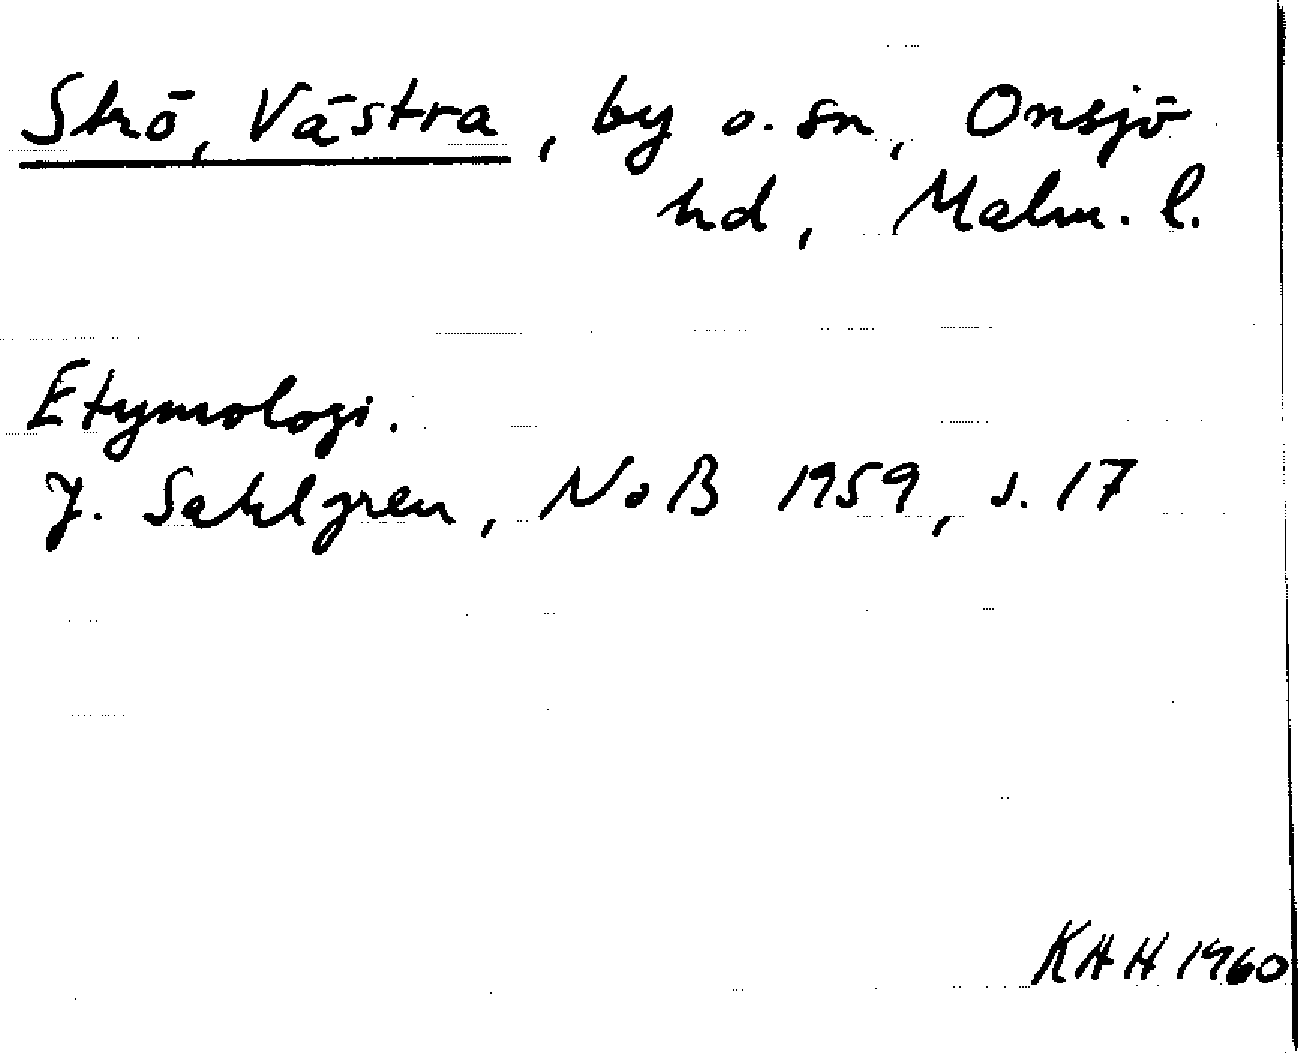 Strö, Västra, by o. sn, Onsjö
hd, Malm. l.
Etymologi.
J. Sahlgren, NoB 1959, s. 17
KHH 1960